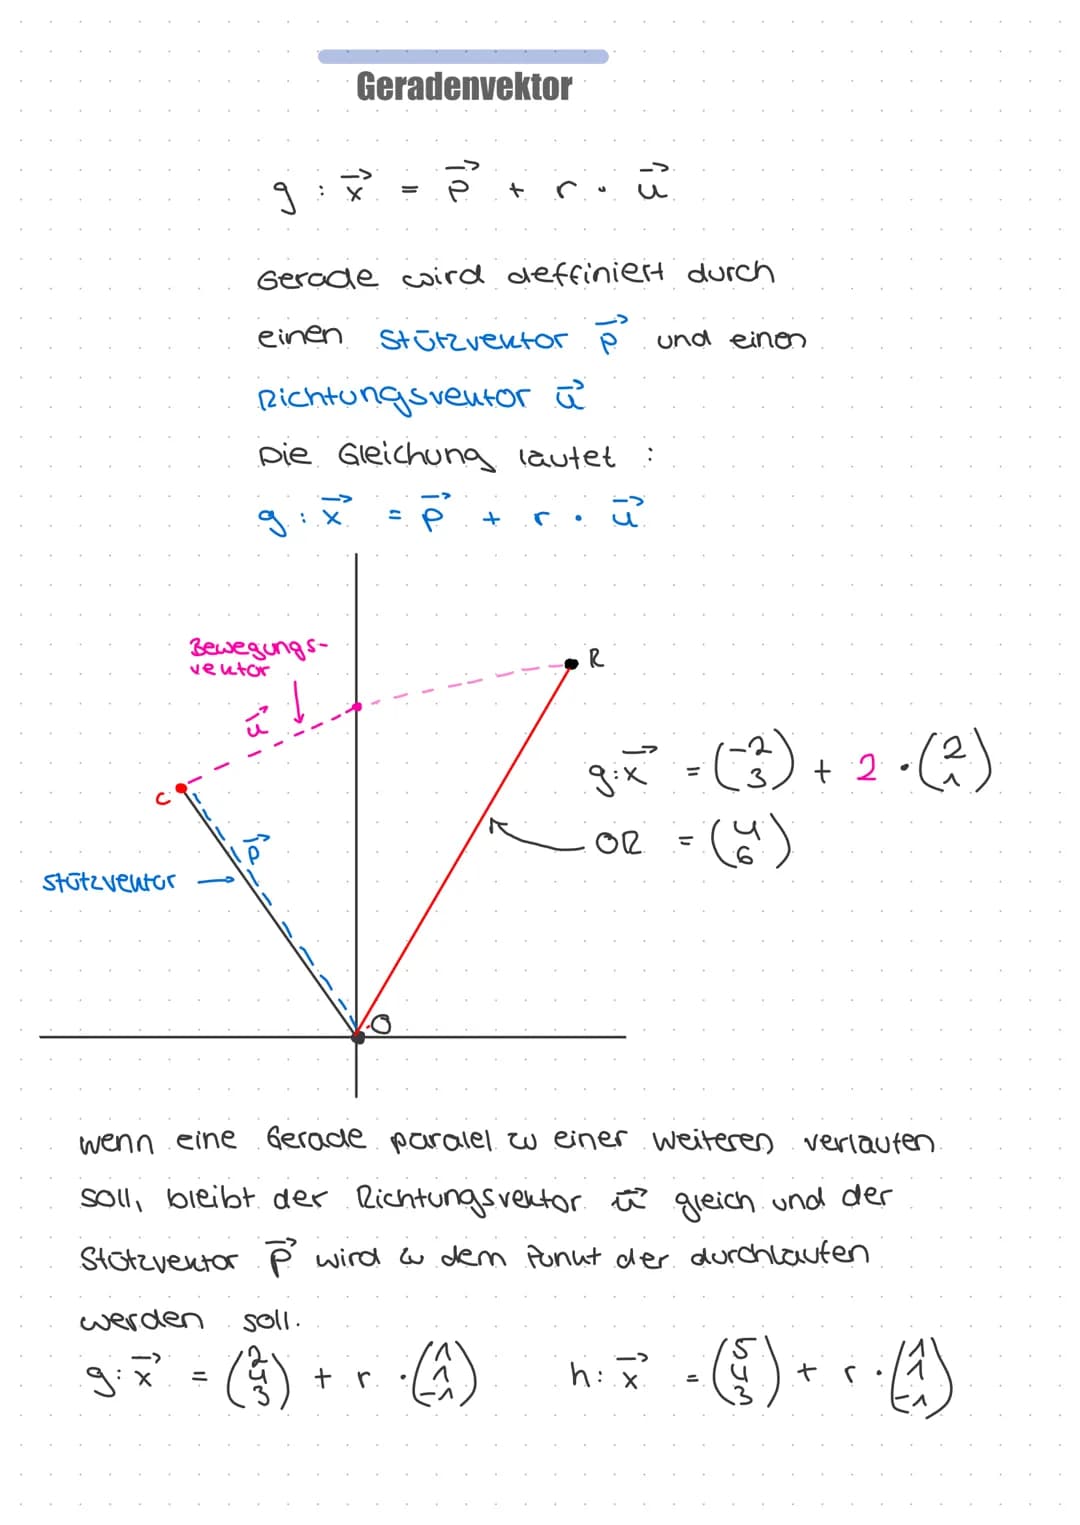 Geradenvektor
g : x⃗ = p⃗ + r · u⃗
Gerade wird deffiniert durch
einen Stützvektor p⃗ und einen
Richtungsvektor u⃗
Die Gleichung lautet :
g : x⃗ = p⃗ + r · u⃗
Bewegungs-
vektor
u⃗
R
C
g: x⃗ = (-2 3) + 2 · (2 1)
OR = (4 6)
p⃗
Stützvektor
O
wenn eine Gerade paralel zu einer weiteren verlaufen
soll, bleibt der Richtungsvektor u⃗ gleich und der
Stützvektor p⃗ wird zu dem Punkt der durchlaufen
werden soll.
g: x⃗ = (2 4 3) + r · (1 1 -1) h: x⃗ = (5 4 3) + r · (1 1 -1)